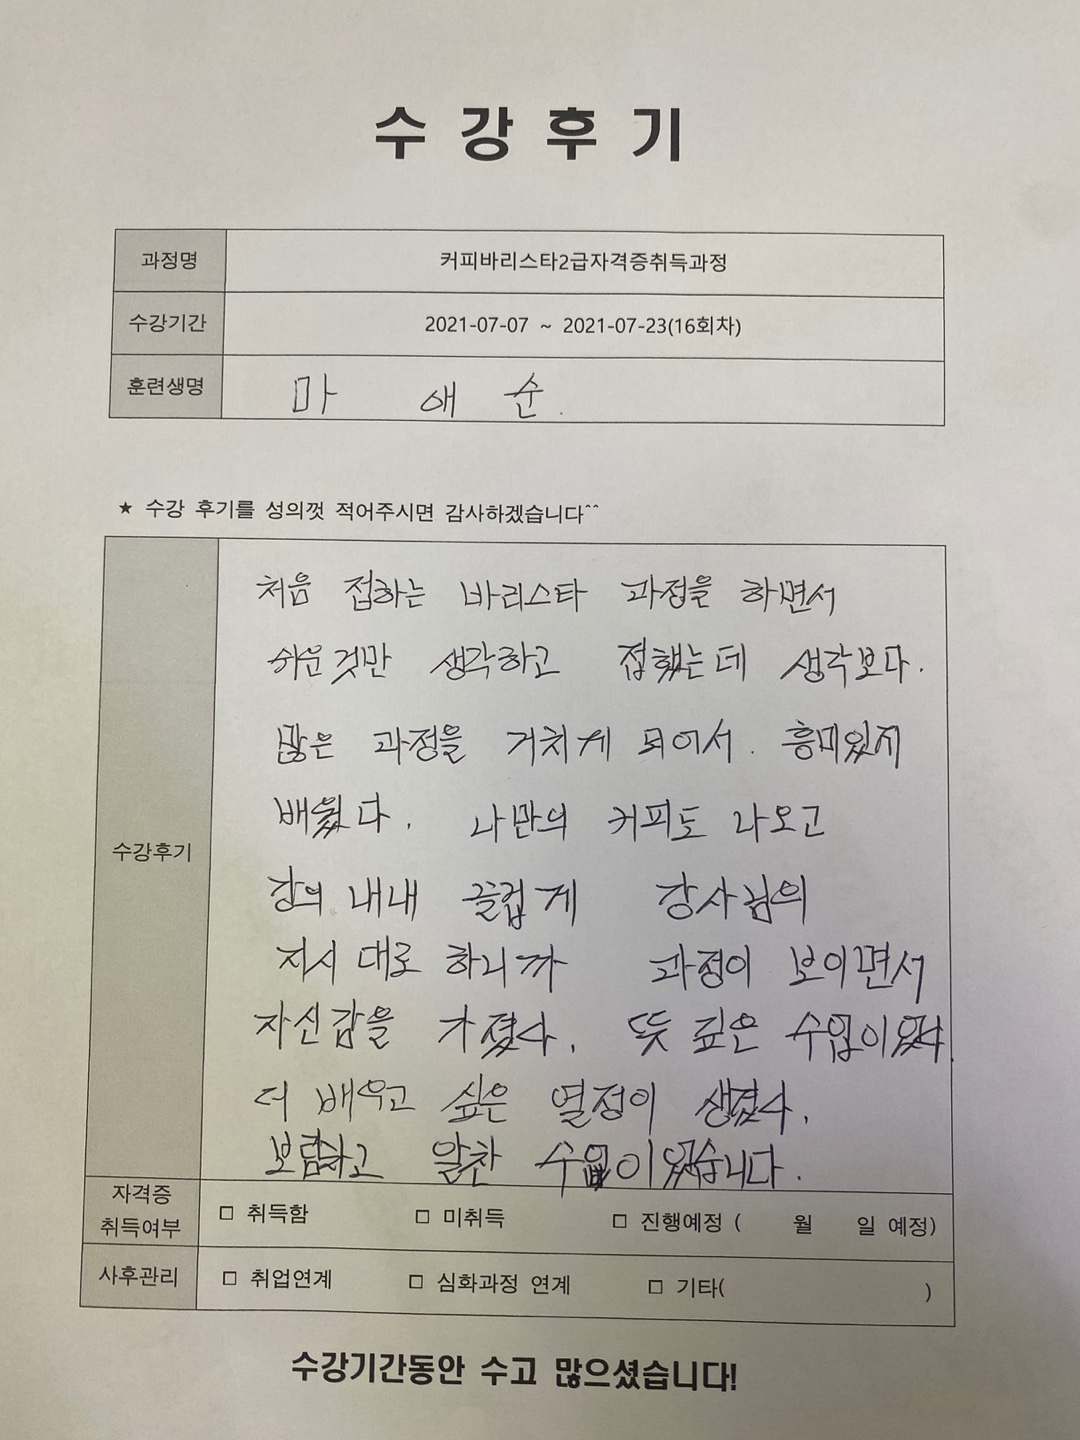 수강후기
과정명 커피바리스타2급자격증취득과정
수강기간 2021-07-07 ~ 2021-07-23(16회차)
훈련생명 마 애 순.
★ 수강 후기를 성의껏 적어주시면 감사하겠습니다^^
수강후기
처음 접하는 바리스타 과정을 하면서
쉬운것만 생각하고 접했는데 생각보다.
많은 과정을 거치게 되어서. 흥미있게
배웠다. 나만의 커피도 나오고
강의 내내 즐겁게 강사님의
지시 대로 하니까 과정이 보이면서
자신감을 가졌다. 뜻 깊은 수업이었다.
더 배우고 싶은 열정이 생겼다.
보람하고 알찬 수업이었습니다.
자격증 취득여부 □ 취득함 □ 미취득 □ 진행예정 ( 월 일 예정)
사후관리 □ 취업연계 □ 심화과정 연계 □ 기타( )
수강기간동안 수고 많으셨습니다!